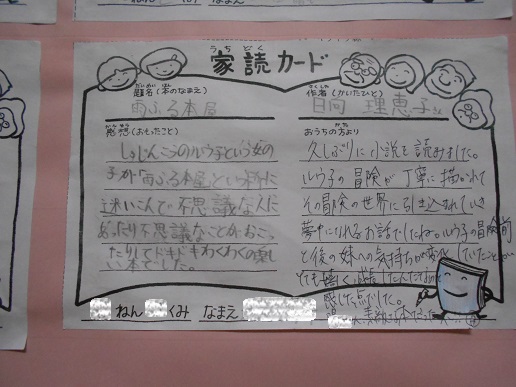 うち どく
家読カード
だいめい
題名(本のなまえ)
雨ふる本屋
かんそう
感想(おもったこと)
しゅじんこうのルウ子という女の
子が「雨ふる本屋」という本屋に
迷いこんで不思議な人に
あったり不思議なことがおこっ
たりしてドキドキわくわくの楽し
い本でした。
さくしゃ
作者(かいたひと)
日向 理恵子さん
おうちの方より
かた
久しぶりに小説を読みました。
ルウ子の冒険が丁寧に描かれて
その冒険の世界に引き込まれていき
夢中になれるお話でしたね。ルウ子の冒険前
と後の妹への気持ちが変化していたことが
とても 成長したんだなあ
感じた点でした。
素敵な本だった
ねん くみ なまえ